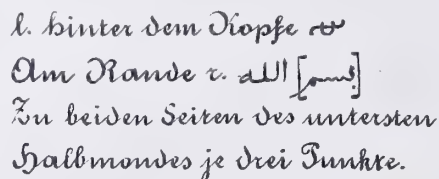 l. hinter dem Kopfe
Am Rande r. الله [بسم]
Zu beiden Seiten des untersten
Halbmondes je drei Punkte.